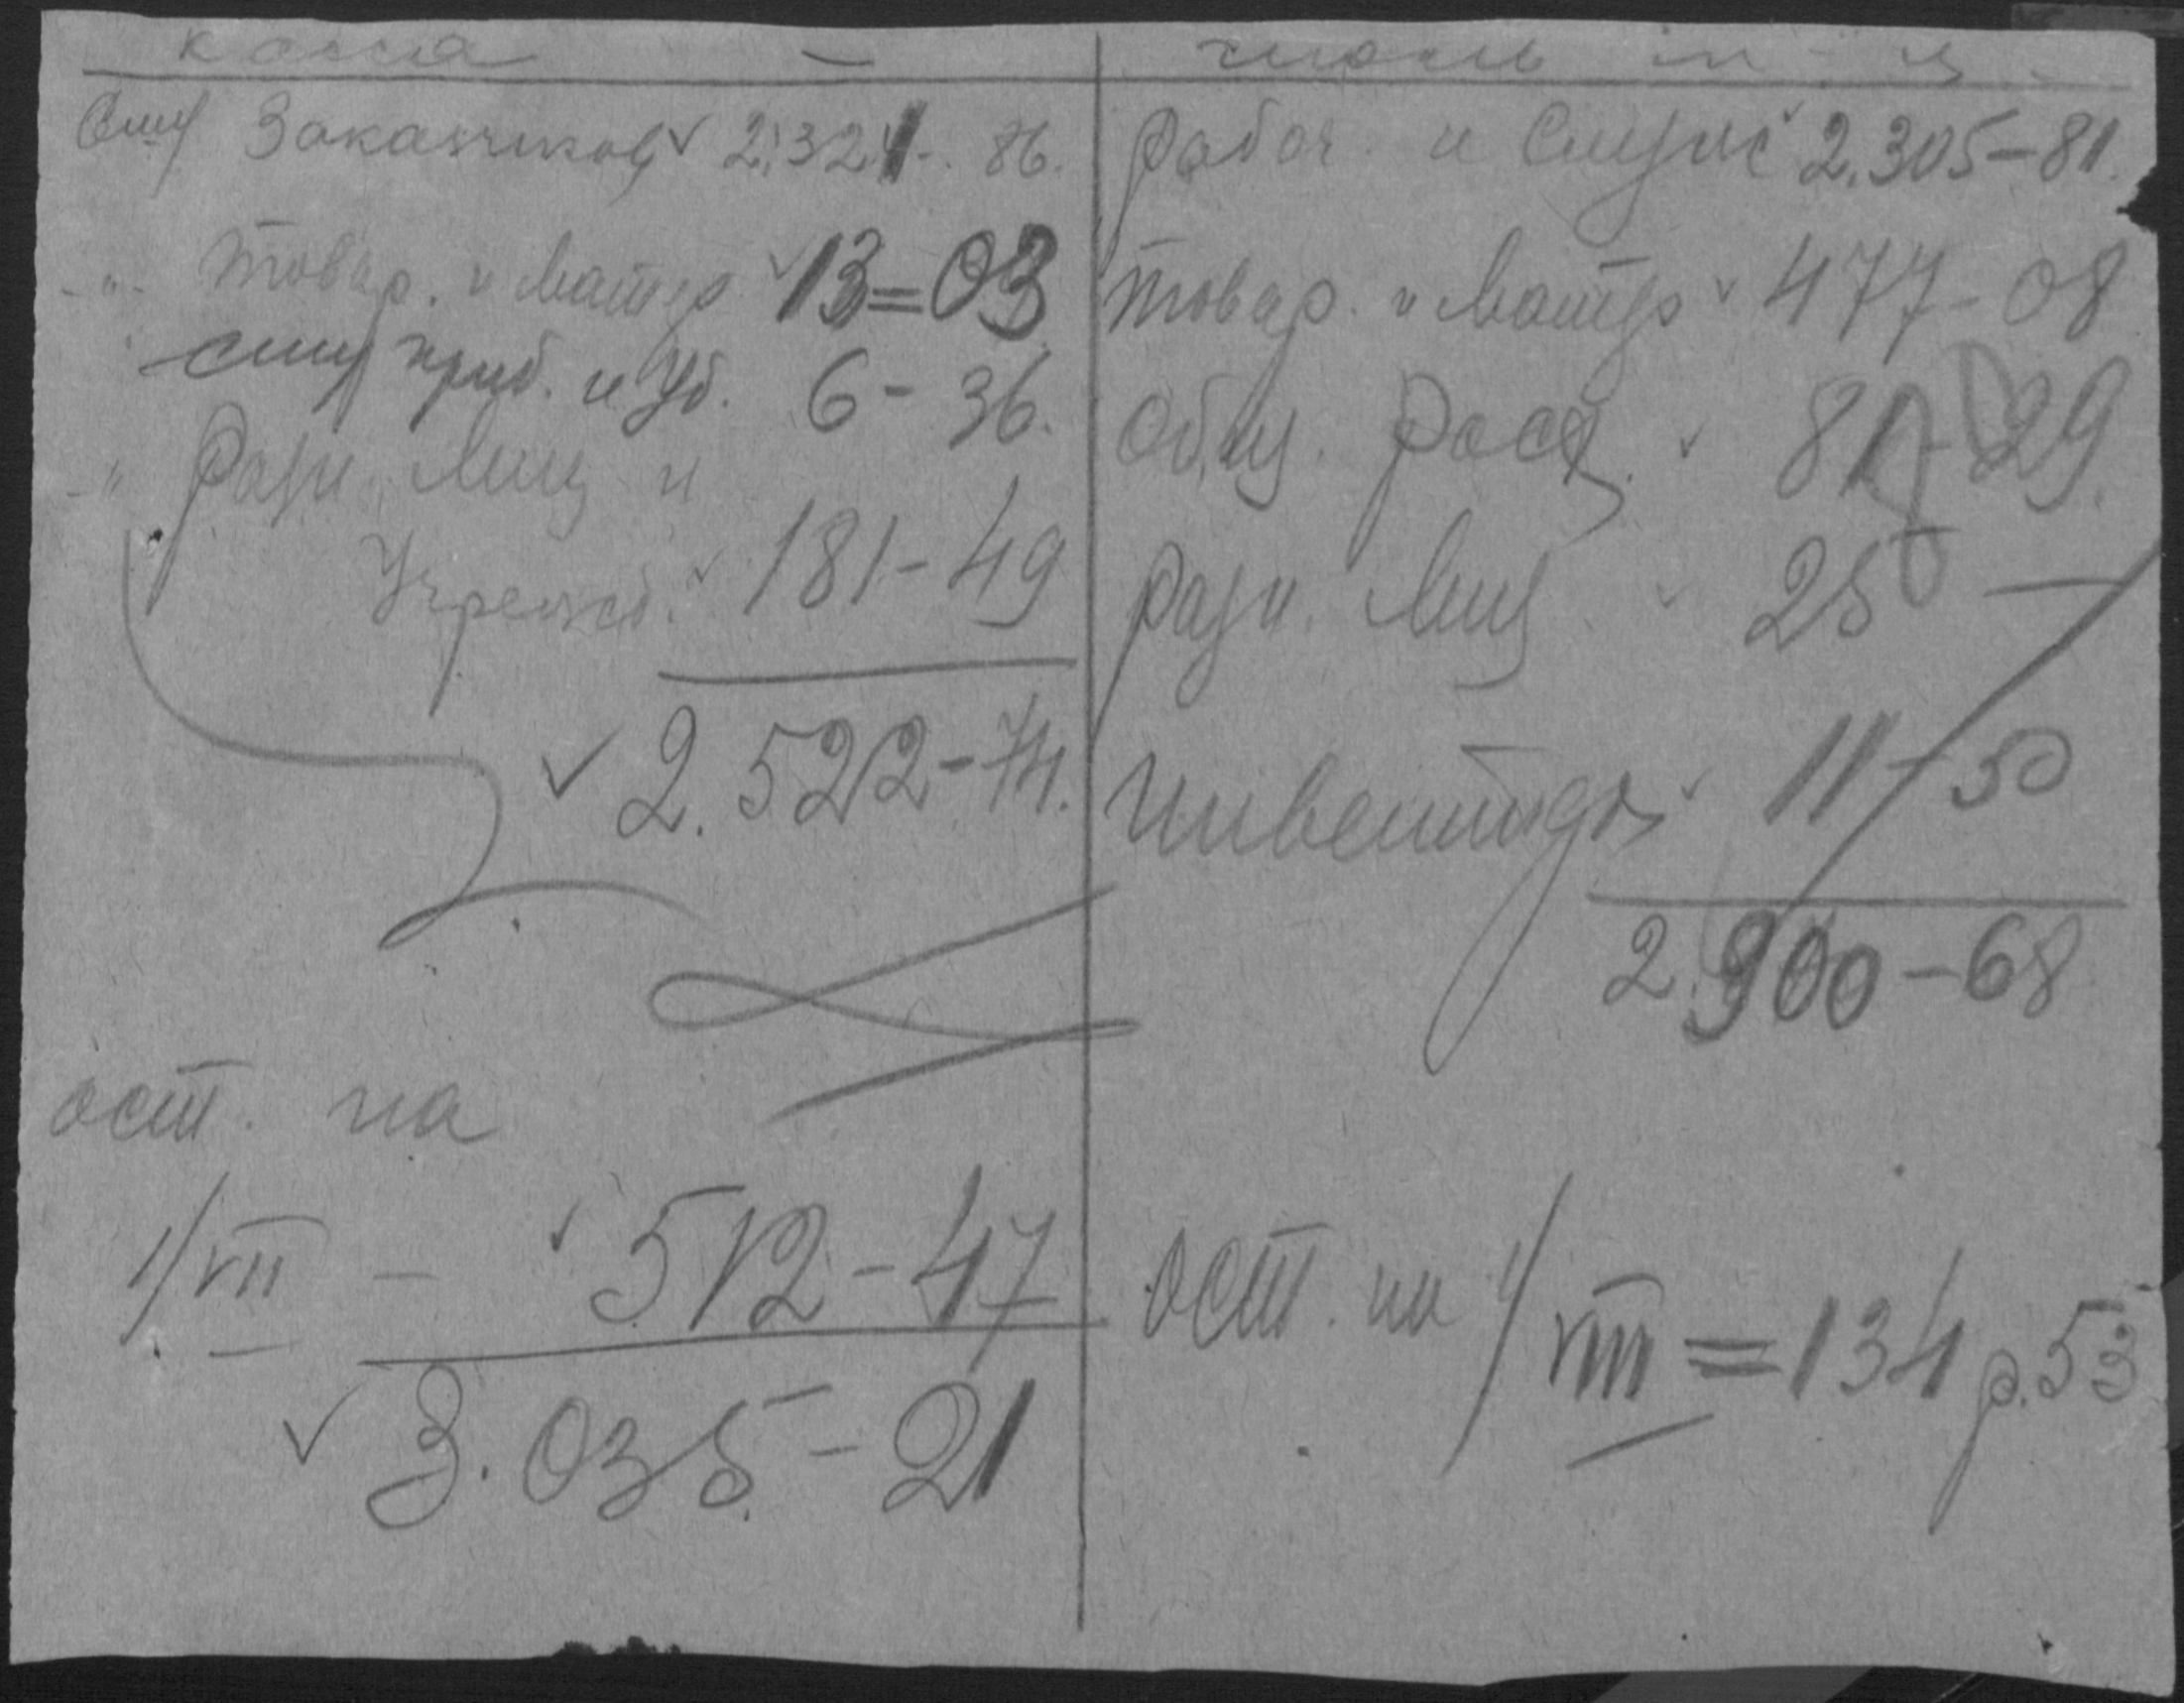 касса — июль м-ц
Счет Заказчиков ✓ 2.321 - 86.
-"- Товар. и Матер ✓ 13 = 03
счет приб. и Уб. 6 - 36.
-"- Разн. Лиц и
Учрежд. ✓ 181 - 49
✓ 2.522 - 74.
ост. на
1/VII - ✓ 512 - 47
✓ 3.035 - 21
Рабоч. и Служ ✓ 2.305 - 81.
Товар. и Матер ✓ 477 - 08
Общ. Расх. ✓ 81 - 29.
Разн. Лиц ✓ 25 —
Инвентарь ✓ 11 - 50
2.900 - 68
ост. на 1/VIII = 134 р. 53